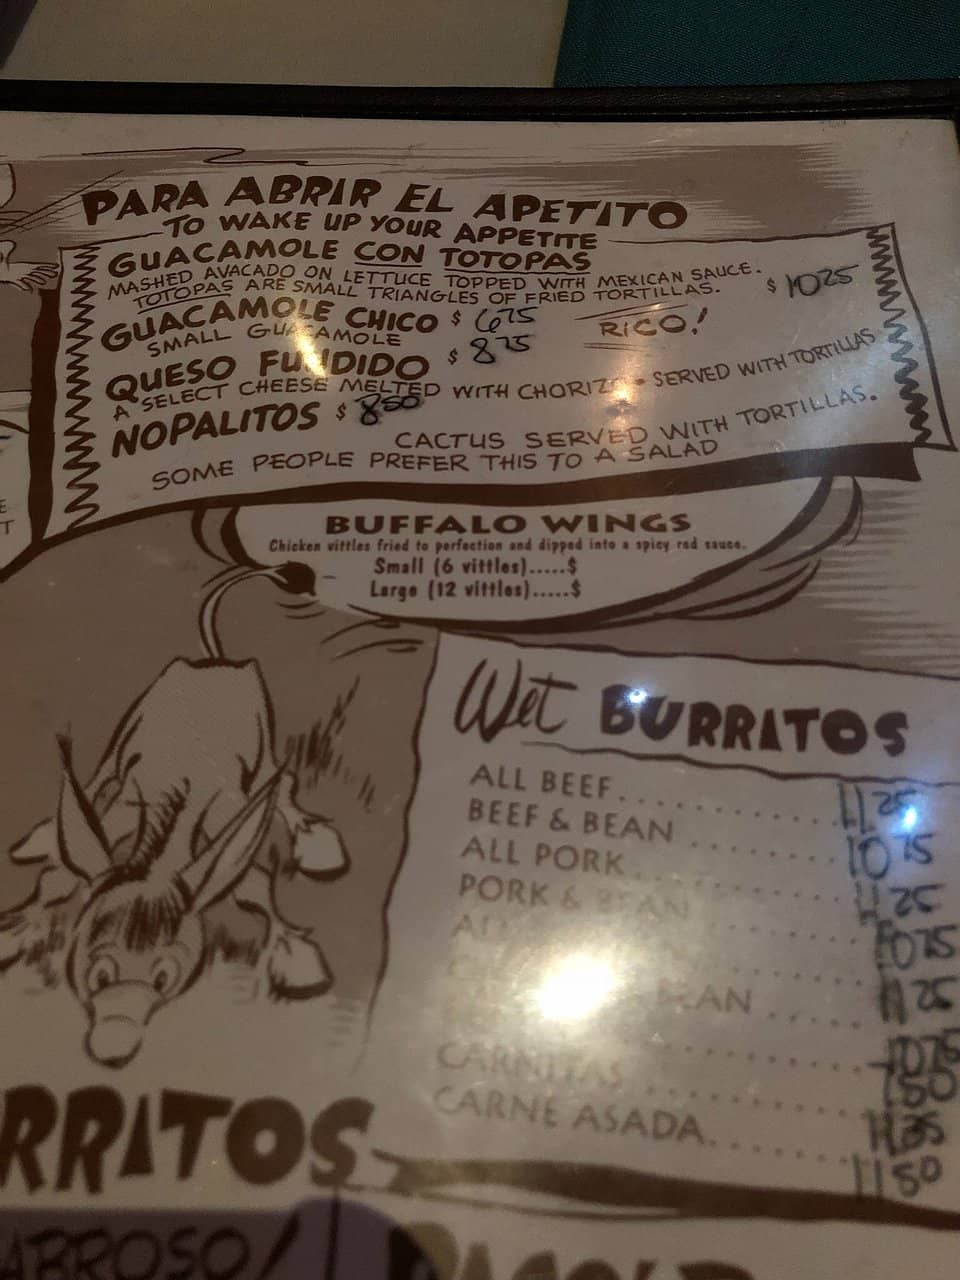 PARA ABRIR EL APETITO
TO WAKE UP YOUR APPETITE
GUACAMOLE CON TOTOPAS
MASHED AVACADO ON LETTUCE TOPPED WITH MEXICAN SAUCE.
TOTOPAS ARE SMALL TRIANGLES OF FRIED TORTILLAS. $ 1025
GUACAMOLE CHICO $ 675 RICO!
SMALL GUACAMOLE
QUESO FUNDIDO $ 875
A SELECT CHEESE MELTED WITH CHORIZO • SERVED WITH TORTILLAS
NOPALITOS $ 850
CACTUS SERVED WITH TORTILLAS.
SOME PEOPLE PREFER THIS TO A SALAD
BUFFALO WINGS
Chicken vittles fried to perfection and dipped into a spicy red sauce.
Small (6 vittles).....$
Large (12 vittles).....$
Wet BURRITOS
ALL BEEF 11 25
BEEF & BEAN 10 75
ALL PORK 11 25
PORK & BEAN 1075
11 25
BEAN 1075
CARNITAS
CARNE ASADA 11 50
RRITOS
ABROSO!